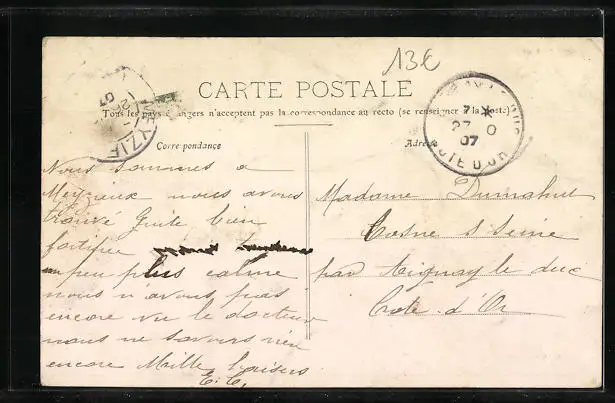 13€
CARTE POSTALE
Tous les pays étrangers n'acceptent pas la correspondance au recto (se renseigner à la poste)
Correspondance
Adresse
MEYZIEU
26
07
7
27 0
07
COTE D'OR
Nous sommes a
Meyzieux nous avons
trouvé Guite bien
fortifiée
un peu plus calme
nous n'avons pas
encore vu le docteur
nous ne savons rien
encore Mille baisers
E. C.
Madame Dumahut
Cosne s Seine
par Aignay le duc
Cote d'Or